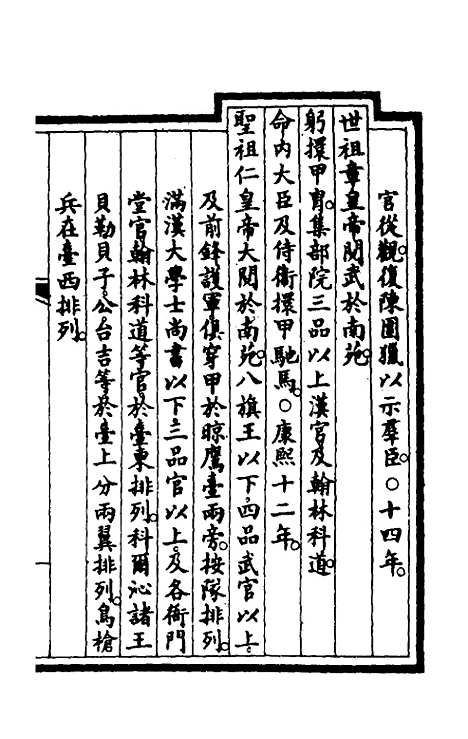 官從觀。復陳圍獵以示羣臣。○十四年。
世祖章皇帝閱武於南苑。
躬擐甲冑。集部院三品以上漢官及翰林科道。
命內大臣及侍衞擐甲馳馬。○康熙十二年。
聖祖仁皇帝大閱於南苑。八旗王以下。四品武官以上。
及前鋒護軍俱穿甲於晾鷹臺兩旁。按隊排列。
滿漢大學士尚書以下三品官以上。及各衙門
堂官翰林科道等官於臺東排列。科爾沁諸王
貝勒貝子。公。台吉等於臺上分兩翼排列。鳥槍
兵在臺西排列。